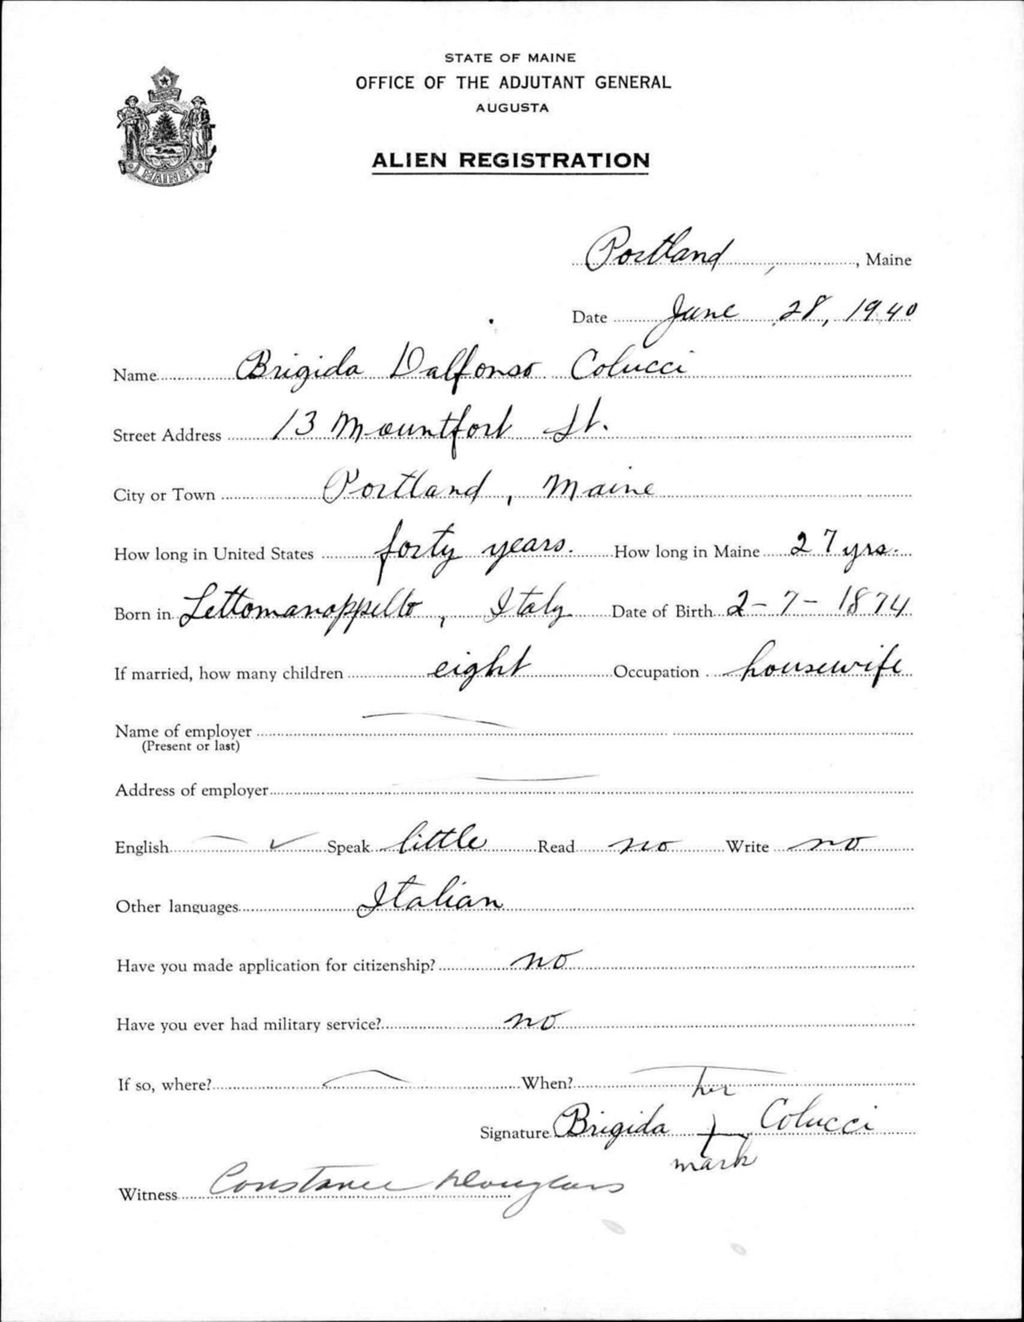 STATE OF MAINE
OFFICE OF THE ADJUTANT GENERAL
AUGUSTA
ALIEN REGISTRATION
MAINE
Portland, Maine
Date June 28, 1940
Name Brigida Dalfonso Colucci
Street Address 13 Mountfort St.
City or Town Portland, Maine
How long in United States forty years. How long in Maine 27 yrs.
Born in Lettomanoppello, Italy Date of Birth 2-7-1874
If married, how many children eight Occupation housewife
Name of employer
(Present or last)
Address of employer
English ✓ Speak little Read no Write no
Other languages Italian
Have you made application for citizenship? no
Have you ever had military service? no
If so, where? When?
her
Signature Brigida Colucci
mark
Witness Constance Douglass